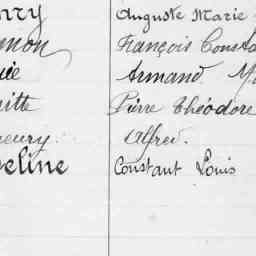 nry Auguste Marie
non François Consta
ie Armand M
itte Pierre Théodore
eury Alfred.
eline Constant Louis